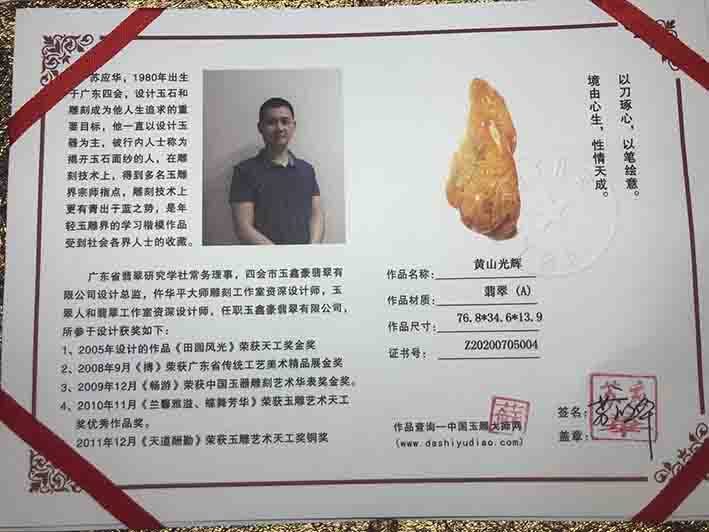 苏应华，1980年出生
于广东四会，设计玉石和
雕刻成为他人生追求的重
要目标，他一直以设计玉
器为主，被行内人士称为
揭开玉石面纱的人，在雕
刻技术上，得到多名玉雕
界宗师指点，雕刻技术上
更有青出于蓝之势，是年
轻玉雕界的学习楷模作品
受到社会各界人士的收藏。
广东省翡翠研究学社常务理事，四会市玉鑫豪翡翠有
限公司设计总监，仵华平大师雕刻工作室资深设计师，玉
翠人和翡翠工作室资深设计师，任职玉鑫豪翡翠有限公司，
所参于设计获奖如下：
1、2005年设计的作品《田园风光》荣获天工奖金奖
2、2008年9月《博》荣获广东省传统工艺美术精品展金奖
3、2009年12月《畅游》荣获中国玉器雕刻艺术华表奖金奖。
4、2010年11月《兰馨雅溢、蝶舞芳华》荣获玉雕艺术天工
奖优秀作品奖。
2011年12月《天道酬勤》荣获玉雕艺术天工奖铜奖
以刀琢心，以笔绘意。
境由心生，性情天成。
作品名称：黄山光辉
作品材质：翡翠（A）
作品尺寸：76.8*34.6*13.9
证书号：Z20200705004
作品查询—中国玉雕大师网
(www.dashiyudiao.com)
签名：
盖章：